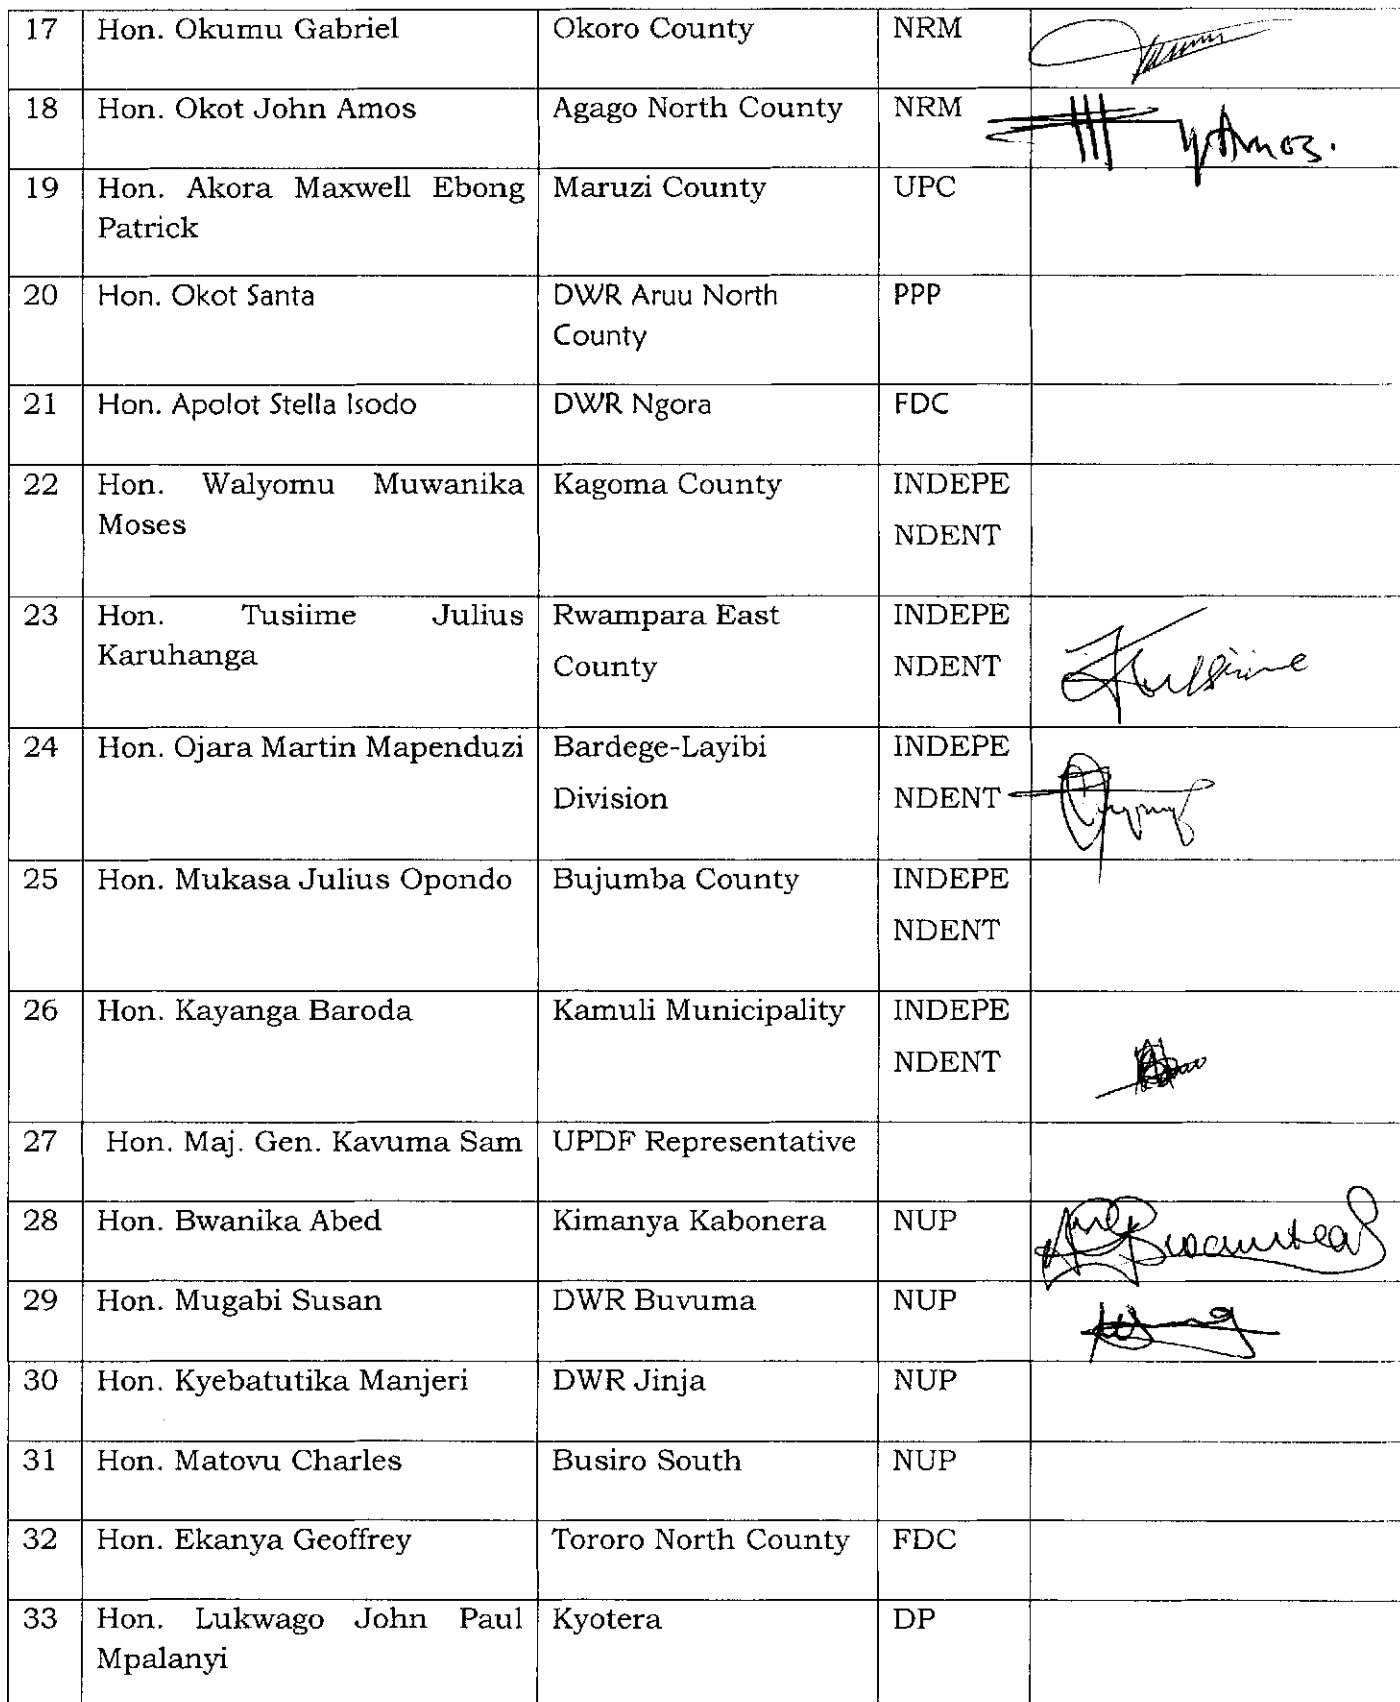 17 Hon. Okumu Gabriel Okoro County NRM
18 Hon. Okot John Amos Agago North County NRM Amos.
19 Hon. Akora Maxwell Ebong Maruzi County UPC
Patrick
20 Hon. Okot Santa DWR Aruu North PPP
County
21 Hon. Apolot Stella Isodo DWR Ngora FDC
22 Hon. Walyomu Muwanika Kagoma County INDEPE
Moses NDENT
23 Hon. Tusiime Julius Rwampara East INDEPE
Karuhanga County NDENT
24 Hon. Ojara Martin Mapenduzi Bardege-Layibi INDEPE
Division NDENT
25 Hon. Mukasa Julius Opondo Bujumba County INDEPE
NDENT
26 Hon. Kayanga Baroda Kamuli Municipality INDEPE
NDENT
27 Hon. Maj. Gen. Kavuma Sam UPDF Representative
28 Hon. Bwanika Abed Kimanya Kabonera NUP
29 Hon. Mugabi Susan DWR Buvuma NUP
30 Hon. Kyebatutika Manjeri DWR Jinja NUP
31 Hon. Matovu Charles Busiro South NUP
32 Hon. Ekanya Geoffrey Tororo North County FDC
33 Hon. Lukwago John Paul Kyotera DP
Mpalanyi